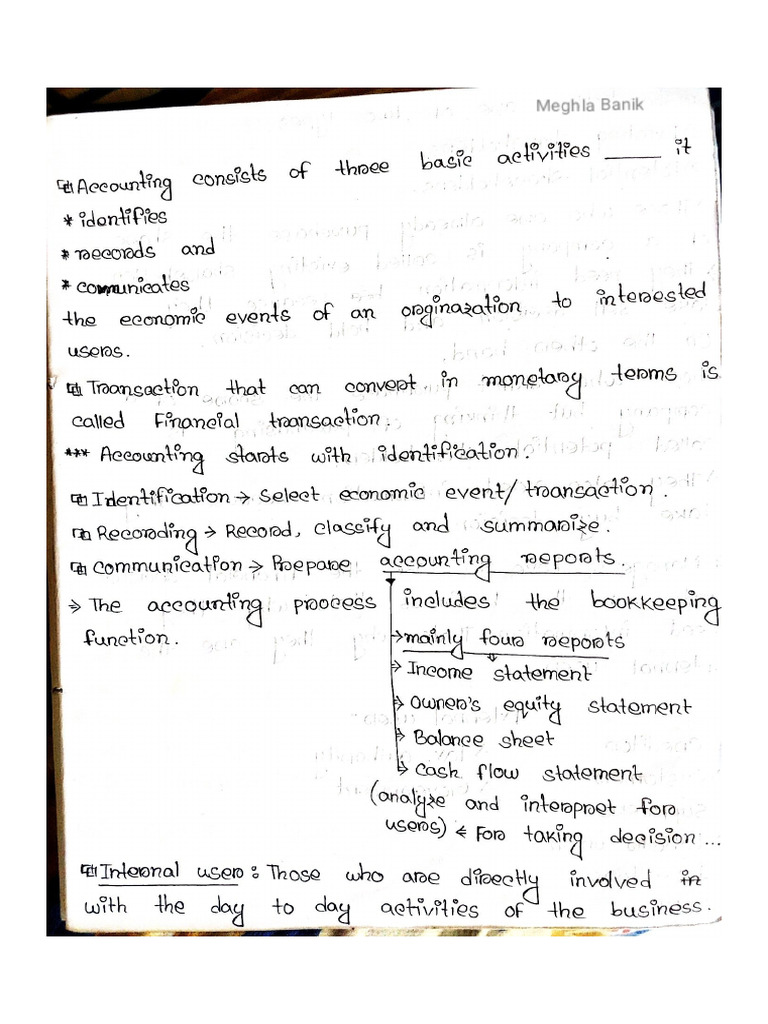 Meghla Banik
Accounting consists of three basic activities ____ it
* identifies
* records and
* communicates
the economic events of an orginazation to interested
users.
Transaction that can convert in monetary terms is
called Financial transaction.
*** Accounting starts with identification.
Identification → Select economic event/transaction.
Recording → Record, classify and summarize.
Communication → Prepare accounting reports.
→ The accounting process includes the bookkeeping
function.
→ mainly four reports
→ Income statement
→ Owner's equity statement
→ Balance sheet
→ Cash flow statement
(analyze and interpret for
users) & For taking decision...
Internal user: Those who are directly involved in
with the day to day activities of the business.